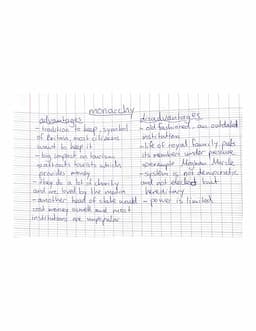 monarchy
advantages
- tradition to keep, symbol
of Britain, most citizens
want to keep it
- big impact on tourism
attracts tourists which
provides money
- they do a lot of charity
and are loved by the media
- another head of state would
cost money as well and most
institutions are unpopular
disadvantages
- old fashioned, an outdated
institution
- life of royal family puts
its members under pressure
example Meghan Markle
- system is not democratic
and not elected but
hereditary
- power is limited